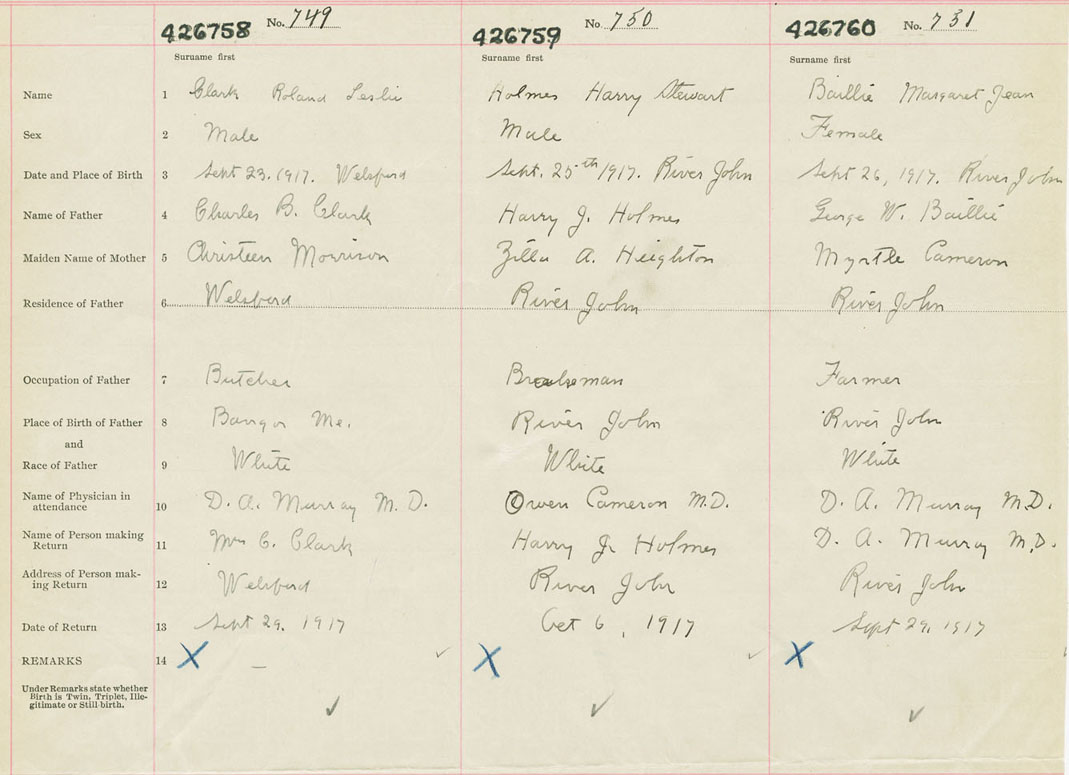 426758 No. 749 426759 No. 750 426760 No. 731
Surname first Surname first Surname first
Name 1 Clark Roland Leslie Holmes Harry Stewart Baillie Margaret Jean
Sex 2 Male Male Female
Date and Place of Birth 3 Sept 23. 1917. Welsford Sept. 25th 1917. River John Sept 26, 1917. River John
Name of Father 4 Charles B. Clark Harry J. Holmes George W. Baillie
Maiden Name of Mother 5 Christeen Morrison Zilla A. Heighton Myrtle Cameron
Residence of Father 6 Welsford River John River John
Occupation of Father 7 Butcher Brakeman Farmer
Place of Birth of Father 8 Bangor Me. River John River John
and
Race of Father 9 White White White
Name of Physician in
attendance 10 D. A. Murray M. D. Owen Cameron M.D. D. A. Murray M.D.
Name of Person making
Return 11 Mrs C. Clark Harry J. Holmes D. A. Murray M.D.
Address of Person mak-
ing Return 12 Welsford River John River John
Date of Return 13 Sept 29. 1917 Oct 6, 1917 Sept 29, 1917
REMARKS 14 X – X X
Under Remarks state whether
Birth is Twin, Triplet, Ille-
gitimate or Still-birth.